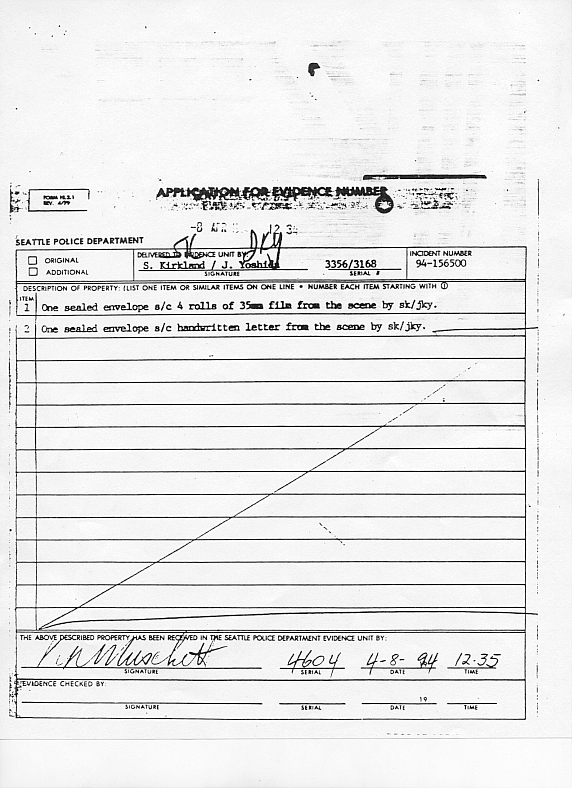 FORM HL 2.1
REV. 4/79
APPLICATION FOR EVIDENCE NUMBER
-8 APR 12 34
SEATTLE POLICE DEPARTMENT
ORIGINAL
ADDITIONAL
DELIVERED TO EVIDENCE UNIT BY:
S. Kirkland / J. Yoshida 3356/3168
SIGNATURE SERIAL #
INCIDENT NUMBER
94-156500
DESCRIPTION OF PROPERTY: (LIST ONE ITEM OR SIMILAR ITEMS ON ONE LINE • NUMBER EACH ITEM STARTING WITH ①
ITEM
1 One sealed envelope s/c 4 rolls of 35mm film from the scene by sk/jky.
2 One sealed envelope s/c handwritten letter from the scene by sk/jky.
THE ABOVE DESCRIBED PROPERTY HAS BEEN RECEIVED IN THE SEATTLE POLICE DEPARTMENT EVIDENCE UNIT BY:
4604 4-8-94 12:35
SIGNATURE SERIAL DATE TIME
EVIDENCE CHECKED BY:
19
SIGNATURE SERIAL DATE TIME